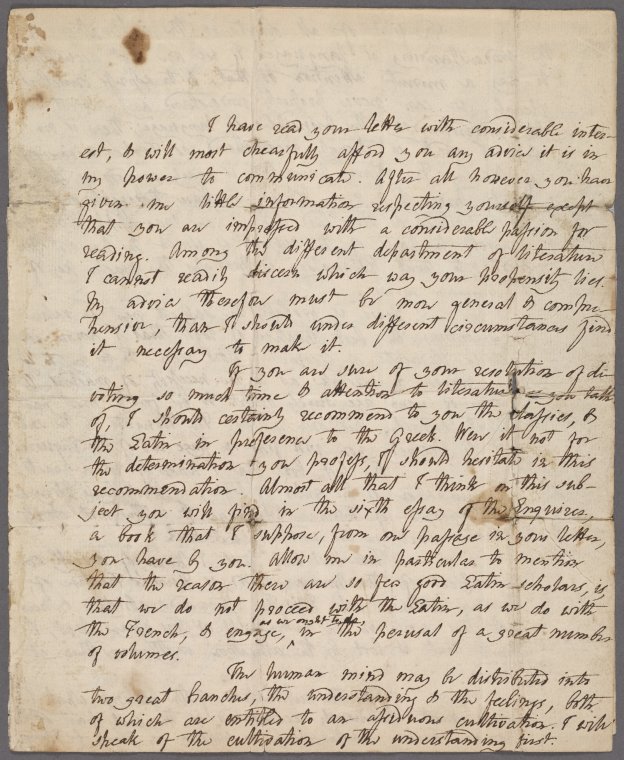 I have read your letter with considerable inter-
est, & will most chearfully afford you any advice it is in
my power to communicate. After all however you have
given me little information respecting yourself except
that you are impressed with a considerable passion for
reading. Among the different department of literature
I cannot readily discern which way your propensity lies.
My advice therefore must be more general & compre-
hensive, than I should under different circumstances find
it necessary to make it.
If you are sure of your resolution of de-
voting so much time & attention to literature as you talk
of, I should certainly recommend to you the classics, &
the Latin in preference to the Greek. Were it not for
the determination you profess, I should hesitate in this
recommendation. Almost all that I think on this sub-
ject you will find in the sixth essay of the Enquirer,
a book that I suppose, from one passage in your letter,
you have by you. Allow me in particular to mention
that the reason there are so few good Latin scholars, is,
that we do not proceed with the Latin, as we do with
the French, & engage, as we ought to do, in the perusal of a great number
of volumes.
The human mind may be distributed into
two great branches, the understanding & the feelings, both
of which are entitled to an assiduous cultivation. I will
speak of the cultivation of the understanding first.